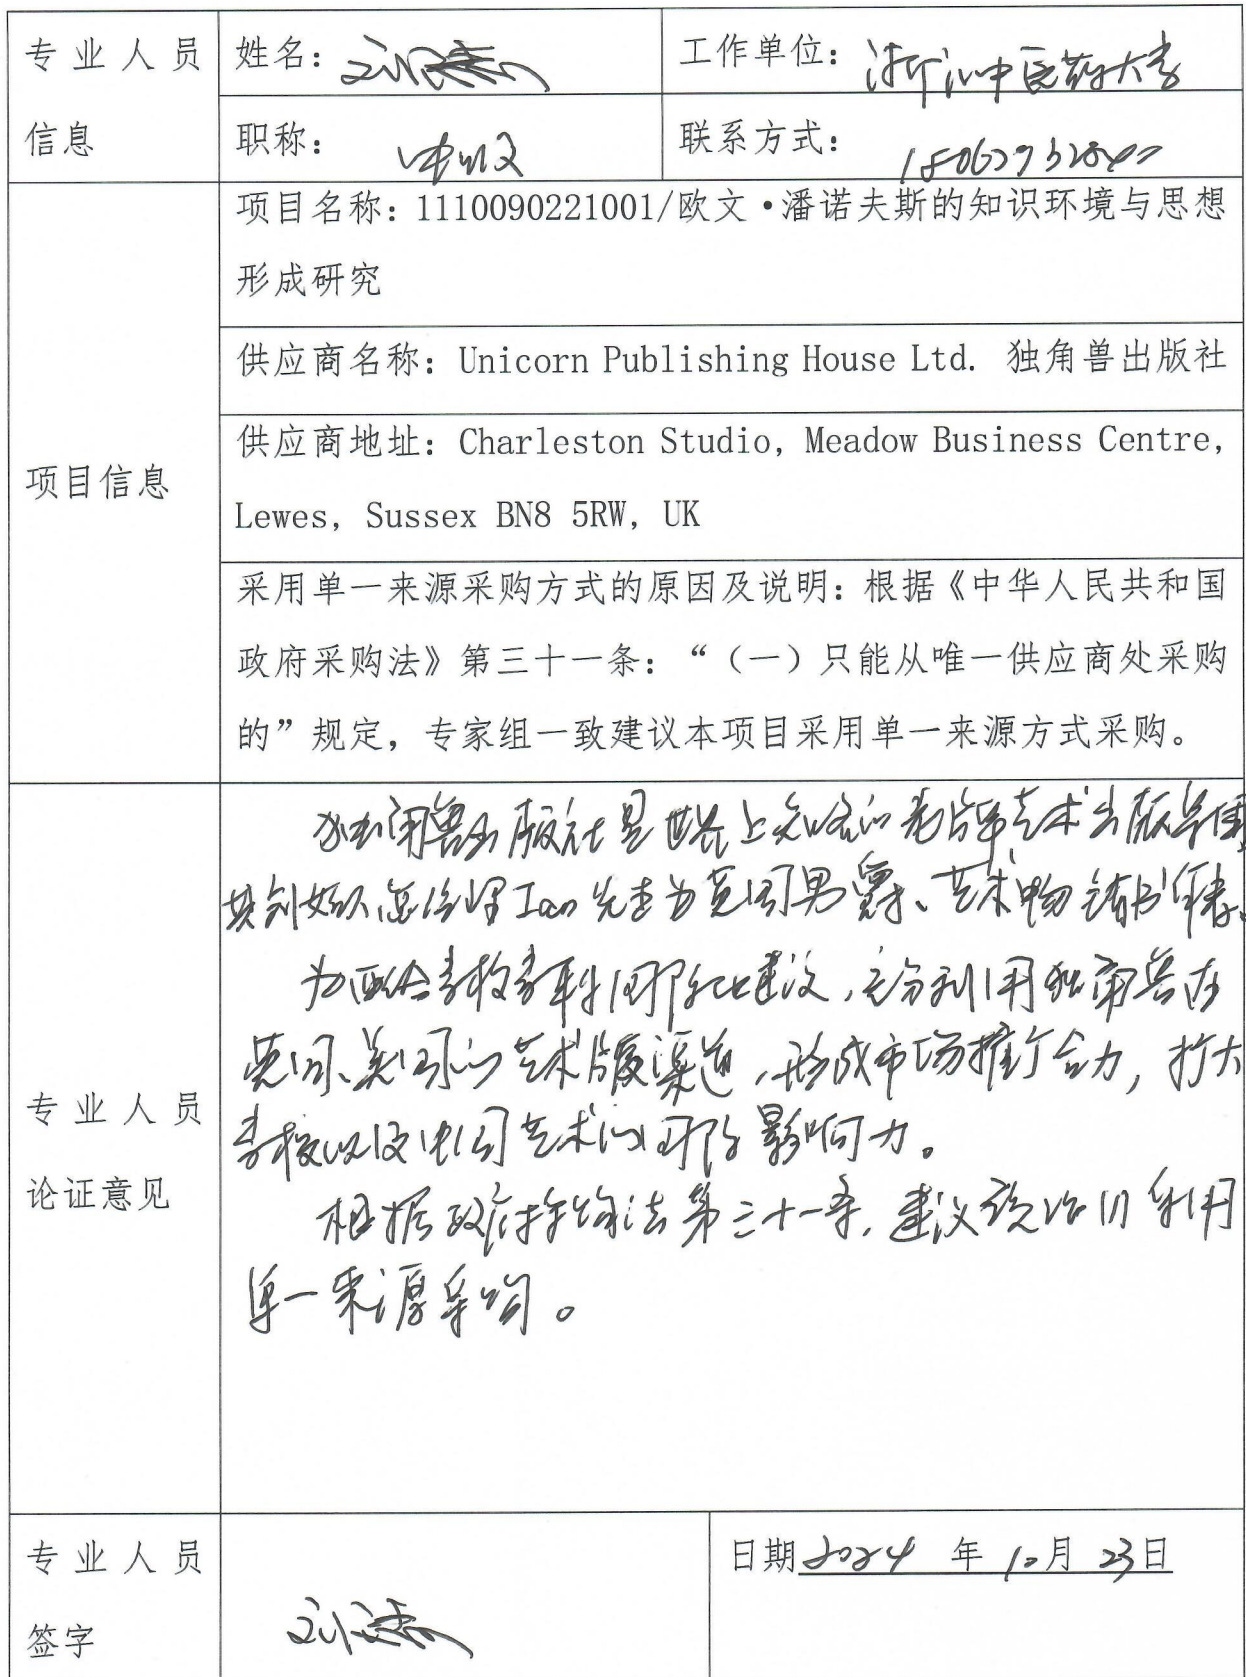 专业人员
信息
姓名：
工作单位：浙江中医药大学
职称：
联系方式：
项目信息
项目名称：1110090221001/欧文·潘诺夫斯的知识环境与思想
形成研究
供应商名称：Unicorn Publishing House Ltd. 独角兽出版社
供应商地址：Charleston Studio, Meadow Business Centre,
Lewes, Sussex BN8 5RW, UK
采用单一来源采购方式的原因及说明：根据《中华人民共和国
政府采购法》第三十一条：“（一）只能从唯一供应商处采购
的”规定，专家组一致建议本项目采用单一来源方式采购。
专业人员
论证意见
独角兽出版社是世界上知名的老牌艺术出版
其创始人 Ian 先生为英国男爵、艺术
为配合学校学科国际化建设，充分利用独角兽在
英国、美国的艺术版渠道，形成市场推广合力，扩大
学校以及中国艺术的国际影响力。
根据政府采购法第三十一条，建议 采用
单一来源采购。
专业人员
签字
日期2024 年 12月 23日